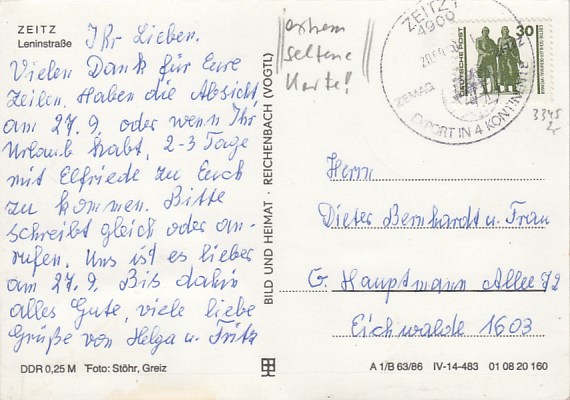 ZEITZ
Leninstraße
Ihr Lieben.
Vielen Dank für Eure
Zeilen. Haben die Absicht
am 27.9. oder wenn Ihr
Urlaub habt, 2-3 Tage
mit Elfriede zu Euch
zu kommen. Bitte
schreibt gleich oder an-
rufen. Uns ist es lieber
am 27.9. Bis dahin
alles Gute, viele liebe
Grüße von Helga u. Fritz
DDR 0,25 M Foto: Stöhr, Greiz
BILD UND HEIMAT · REICHENBACH (VOGTL)
extrem
seltene
Karte!
ZEITZ 1
4900
ZEMAG ZEITZ
EXPORT IN 4 KONTINENTE
DEUTSCHE POST
30
3345
Herrn
Dieter Bernhardt u. Frau
G. Hauptmann Allee 72
Eichwalde 1603
A 1/B 63/86 IV-14-483 01 08 20 160